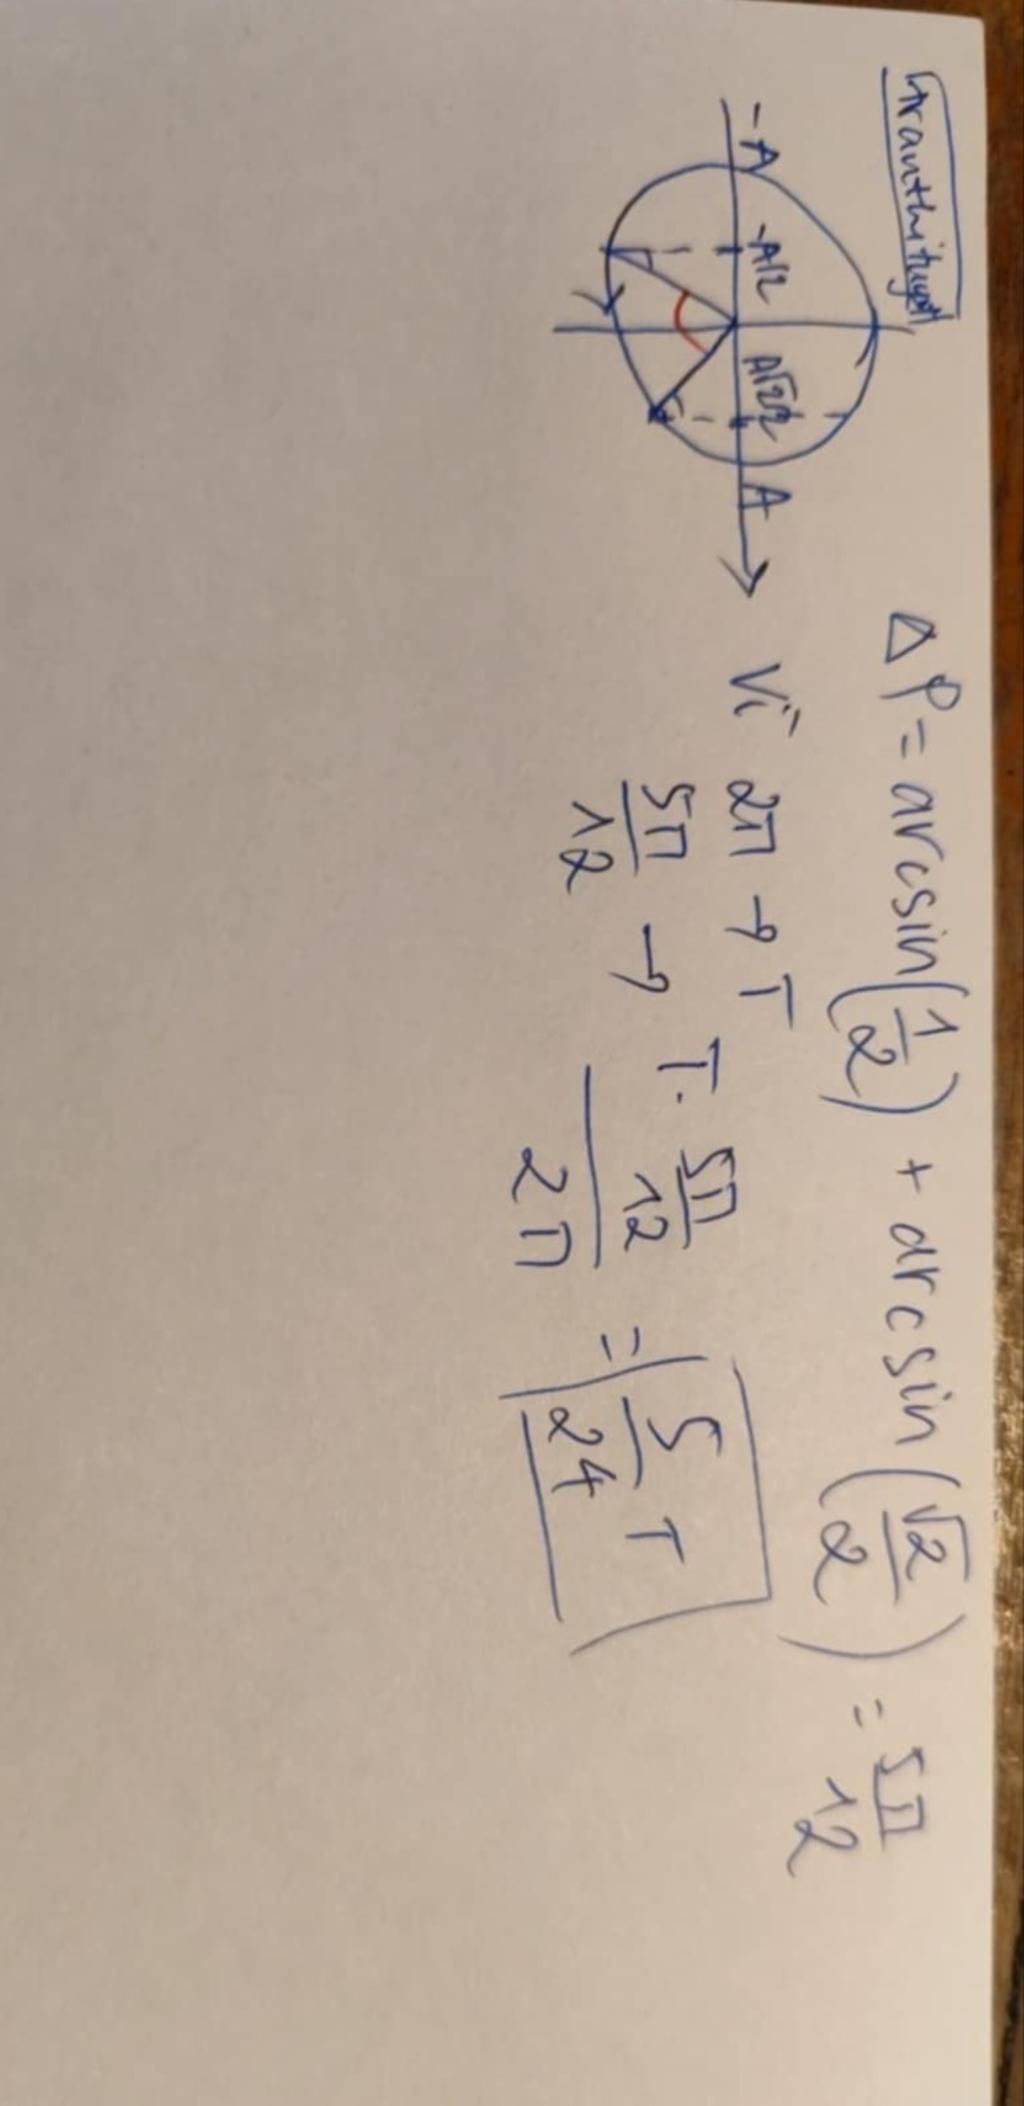 tranthituyet
-A -A/2 A√2/2 A
Δφ = arcsin(1/2) + arcsin(√2/2) = 5π/12
Vì 2π → T
5π/12 → T. 5π/12 / 2π = 5/24 T